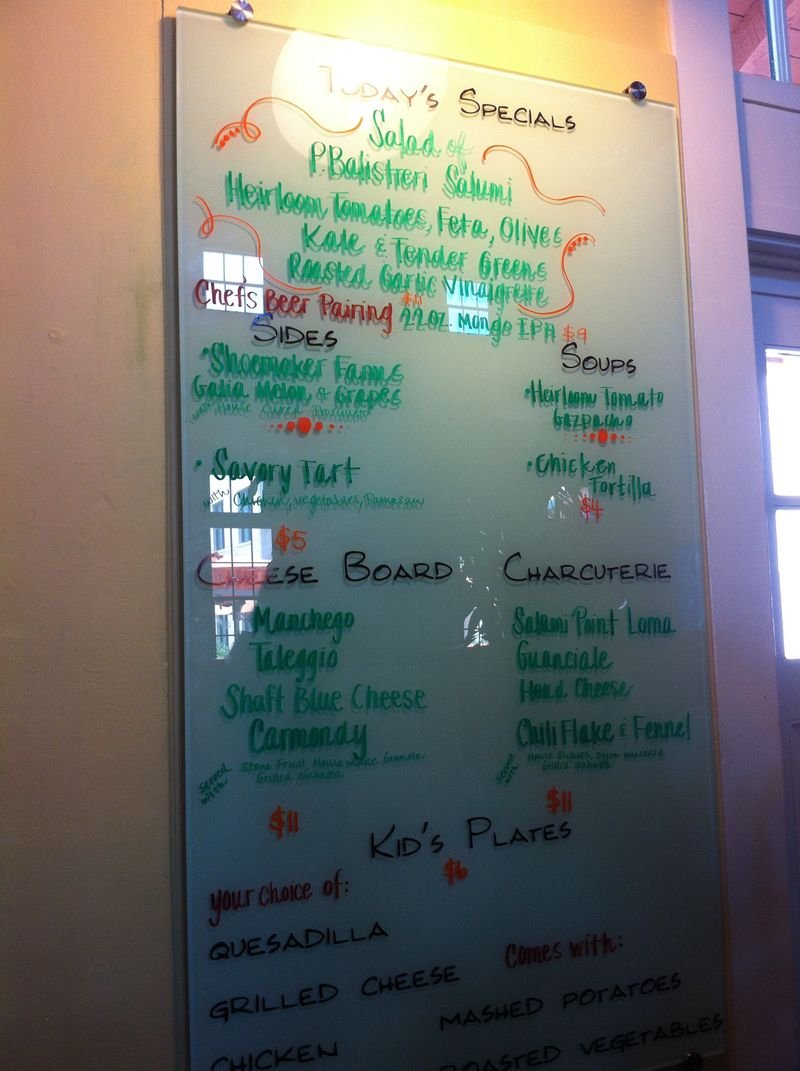 Today's Specials
Salad of
P. Balistreri Salumi
Heirloom Tomatoes, Feta, Olives
Kale & Tender Greens
Roasted Garlic Vinaigrette
$11
Chef's Beer Pairing 22oz. Mango IPA $9
Sides
• Shoemaker Farms
Galia Melon, & Grapes
with House Cured Prosciutto
• Savory Tart
with Chicken, Vegetables, Parmesan
$5
Soups
• Heirloom Tomato
Gazpacho
• Chicken
Tortilla
$4
Cheese Board
Manchego
Taleggio
Shaft Blue Cheese
Carmondy
served with
Stone Fruit, House made Granola
Grilled ciabatta
$11
Charcuterie
Salami Point Loma
Guanciale
Head Cheese
Chili Flake & Fennel
served with
House Pickles, Dijon mustard
Grilled ciabatta
$11
Kid's Plates
$6
your choice of:
Quesadilla
Grilled Cheese
Chicken
Comes with:
Mashed Potatoes
Roasted Vegetables